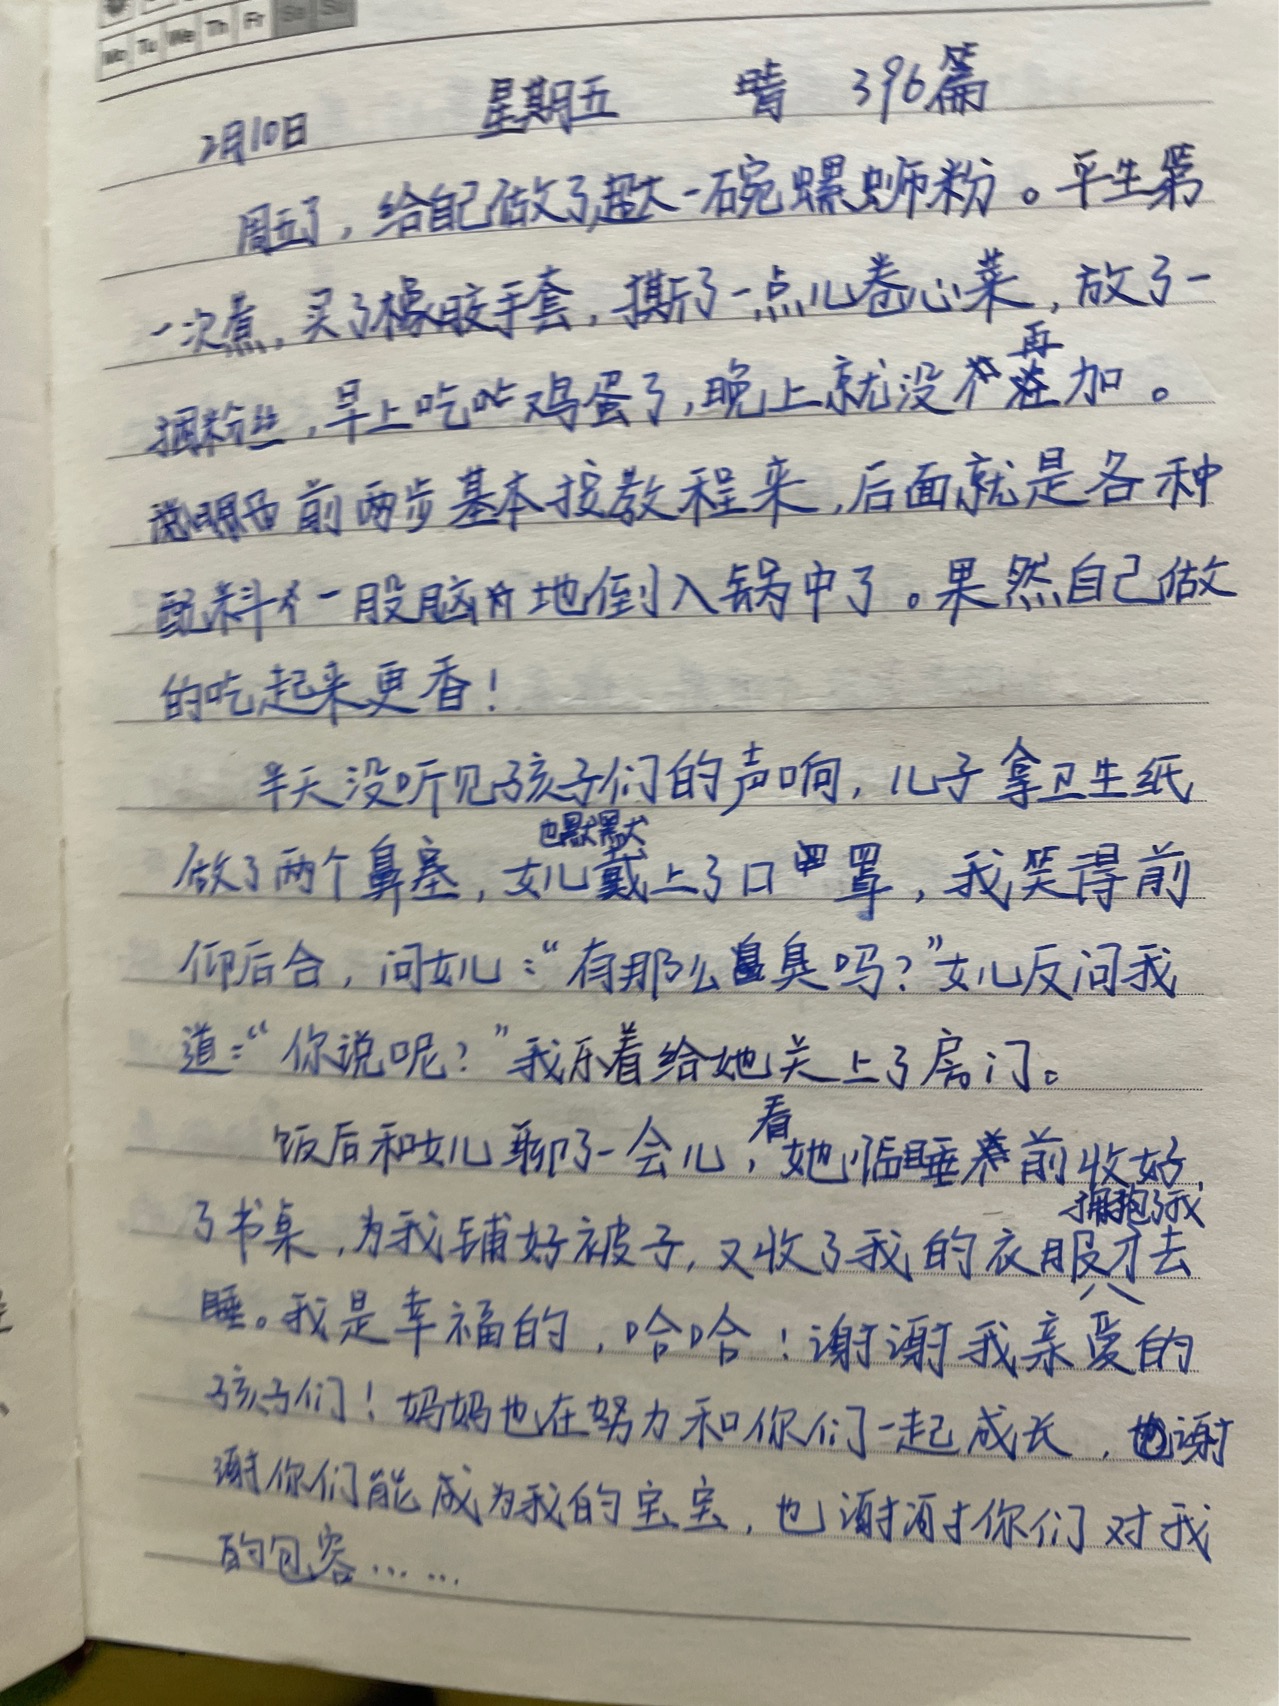 Mo Tu We Th Fr Sa Su
2月10日 星期五 晴 396篇
周五了，给自己做了超大一碗螺蛳粉。平生第
一次煮，买了橡胶手套，撕了一点儿卷心菜，放了一
捆粉丝，早上吃鸡蛋了，晚上就没再加。
前两步基本按教程来，后面就是各种
配料一股脑地倒入锅中了。果然自己做
的吃起来更香！
半天没听见孩子们的声响，儿子拿卫生纸
做了两个鼻塞，女儿也默默戴上了口罩，我笑得前
仰后合，问女儿：“有那么臭吗？”女儿反问我
道：“你说呢？”我乐着给她关上了房门。
饭后和女儿聊了一会儿，看她临睡前收好
了书桌，为我铺好被子，又收了我的衣服拥抱了我才去
睡。我是幸福的，哈哈！谢谢我亲爱的
孩子们！妈妈也在努力和你们一起成长，也谢
谢你们能成为我的宝宝，也谢谢你们对我
的包容……